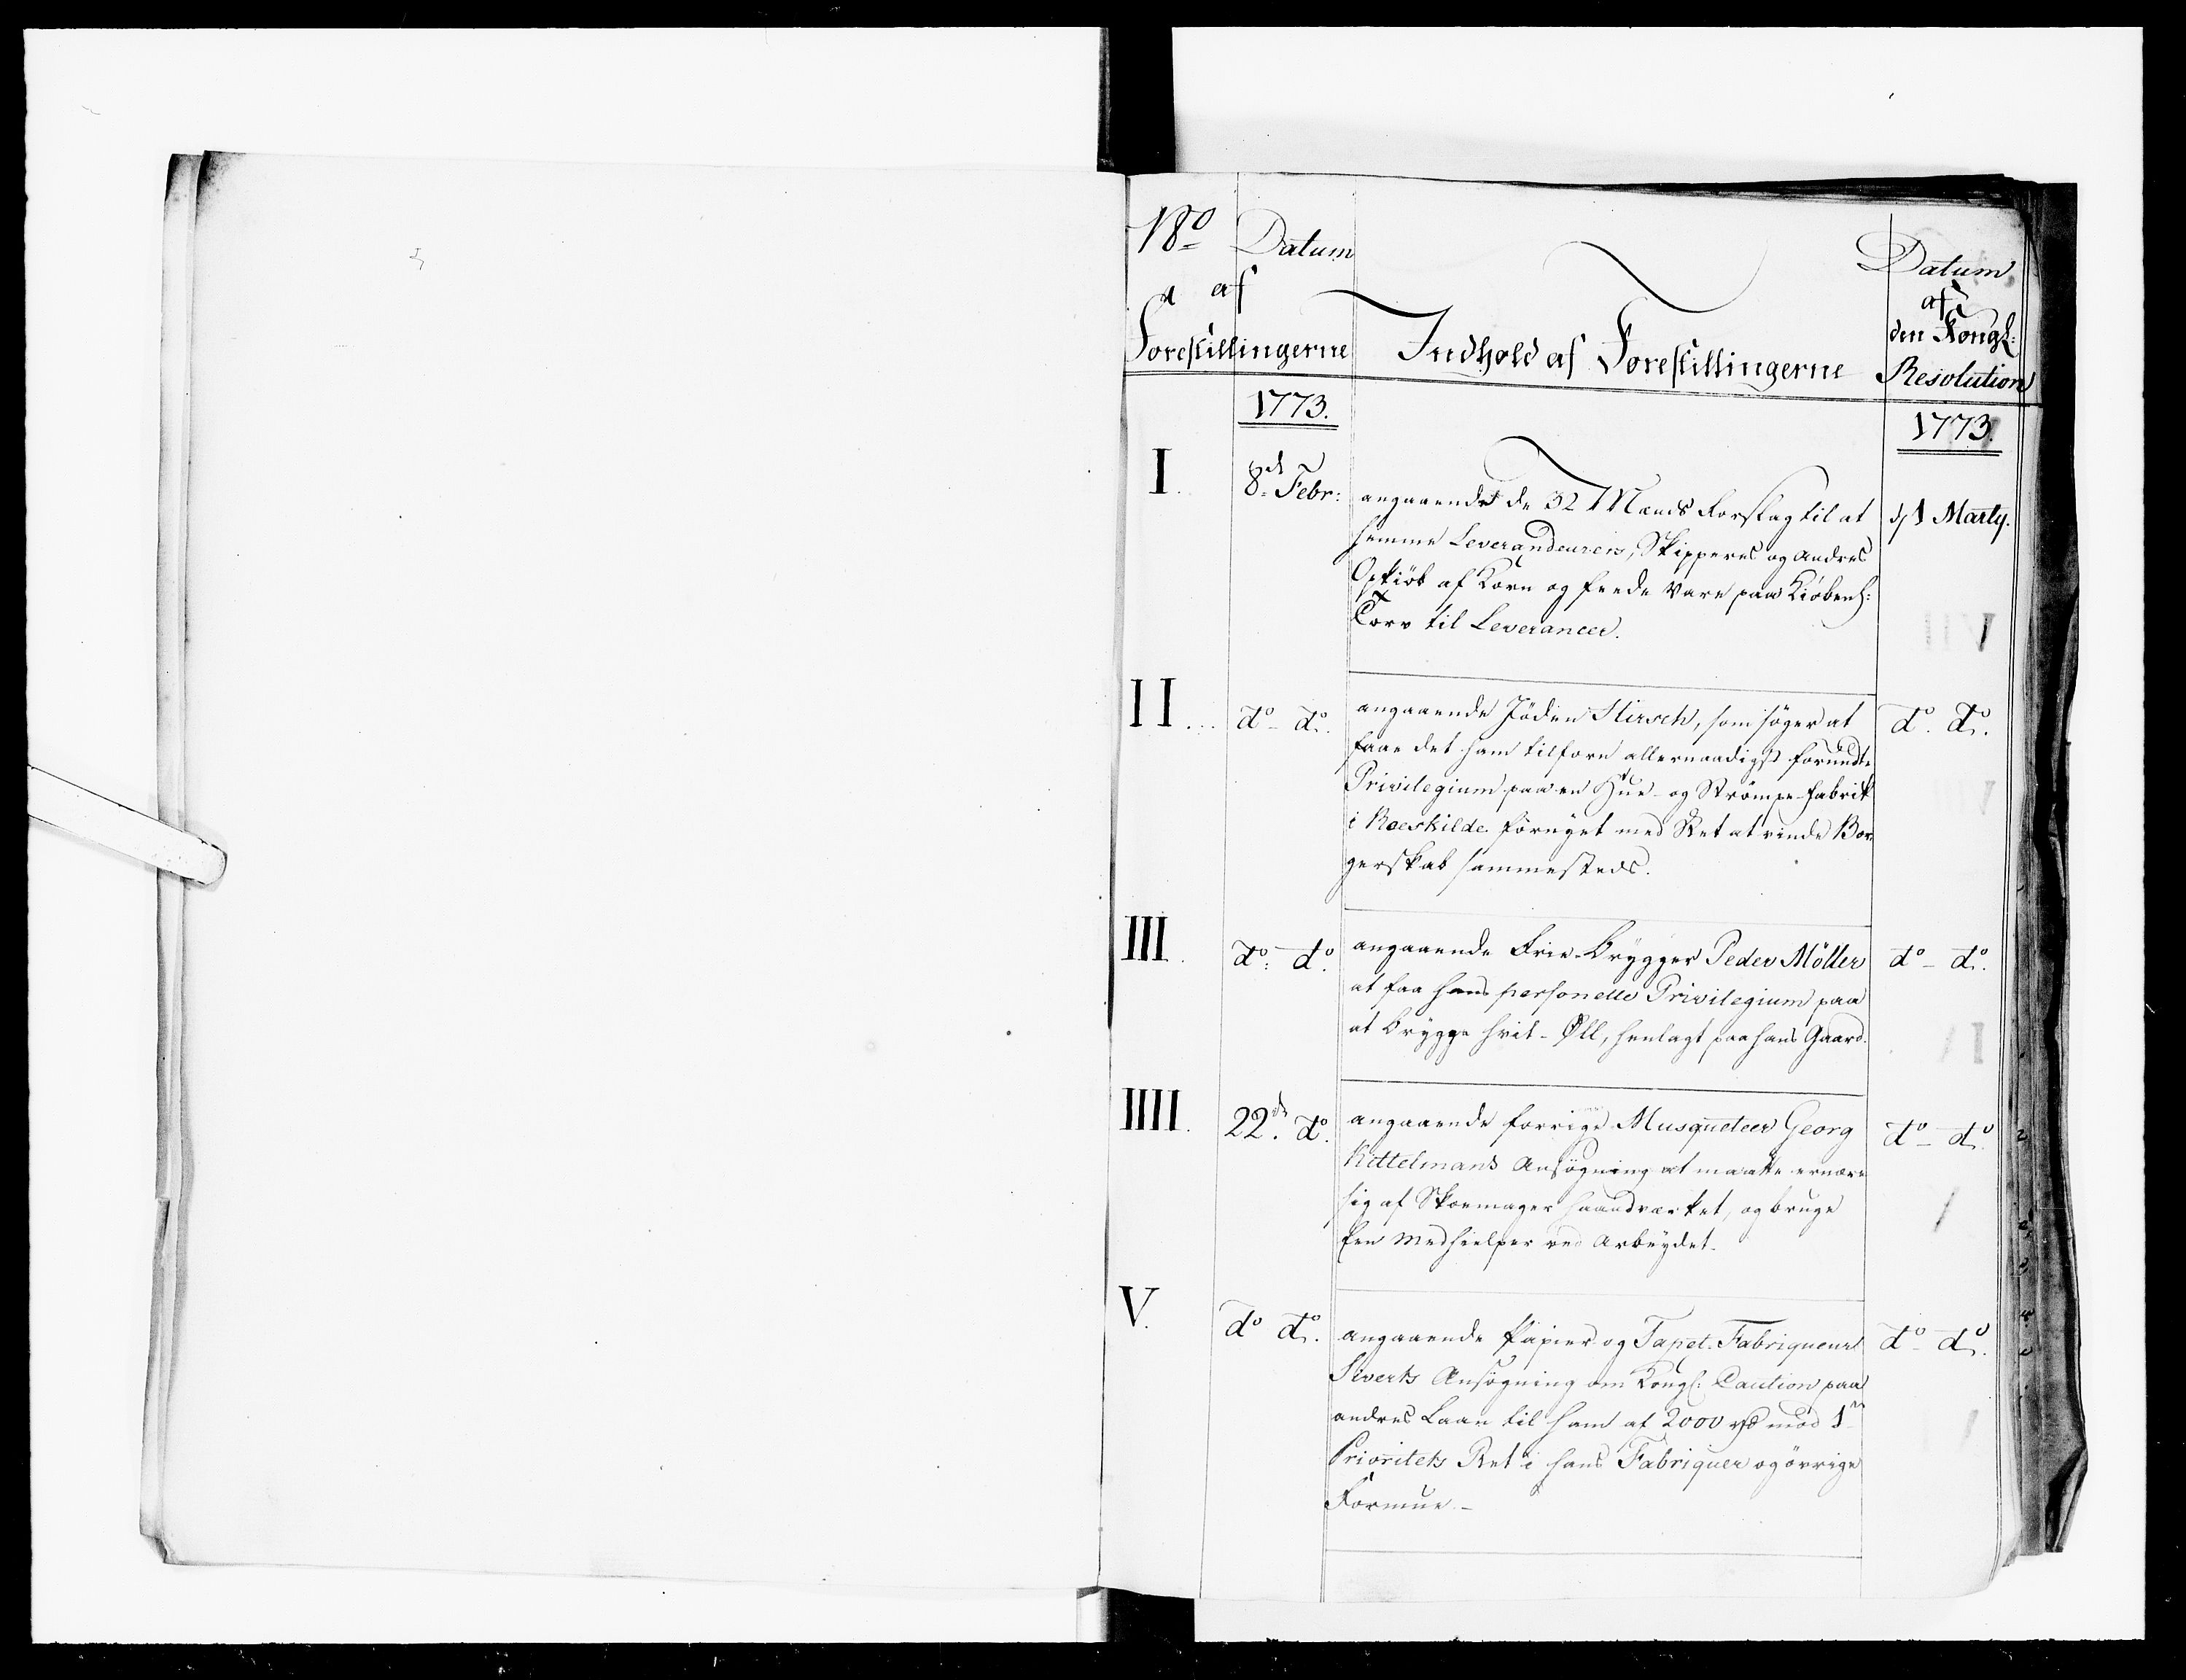 No Datum
af
Forestillingerne
Indhold af Forestillingerne
Datum
af
den Kongl:
Resolution
1773.
1773.
I. 8de Febr: angaaende de 32 Mænds Forslag til at
d. 1 Marty.
hemme Leverandeurers, Skipperes og Andres
Opkiøb af Korn og feede Vare paa Kiøbenh:
Torv til Leverancer.
II. do - do. angaaende Jøden Hirsch, som søger at
do. do.
faae det ham tilforn allernaadigst forundte
Privilegium paa en Hue- og Strømpe-Fabrik
i Roeskilde fornyet med Ret at vinde Bor-
gerskab sammesteds.
III. do: do. angaaende Frie-Brygger Peder Møller
do - do.
at faa hans personelle Privilegium paa
at brygge hvit-Øll, henlagt paa hans Gaard.
IIII. 22de do. angaaende forrige Musqueteer Georg
do - do.
Kittelmans Ansøgning at maatte ernære
sig af Skoemager Haandværket, og bruge
Een Medhielper ved Arbeydet.
V. do do. angaaende Papier og Tapet-Fabriqueur
do - do.
Siverts Ansøgning om Kongl: Caution paa
andres Laan til ham af 2000 rd mod 1te
Prioritets Ret i hans Fabriquer og øvrige
Formue.-